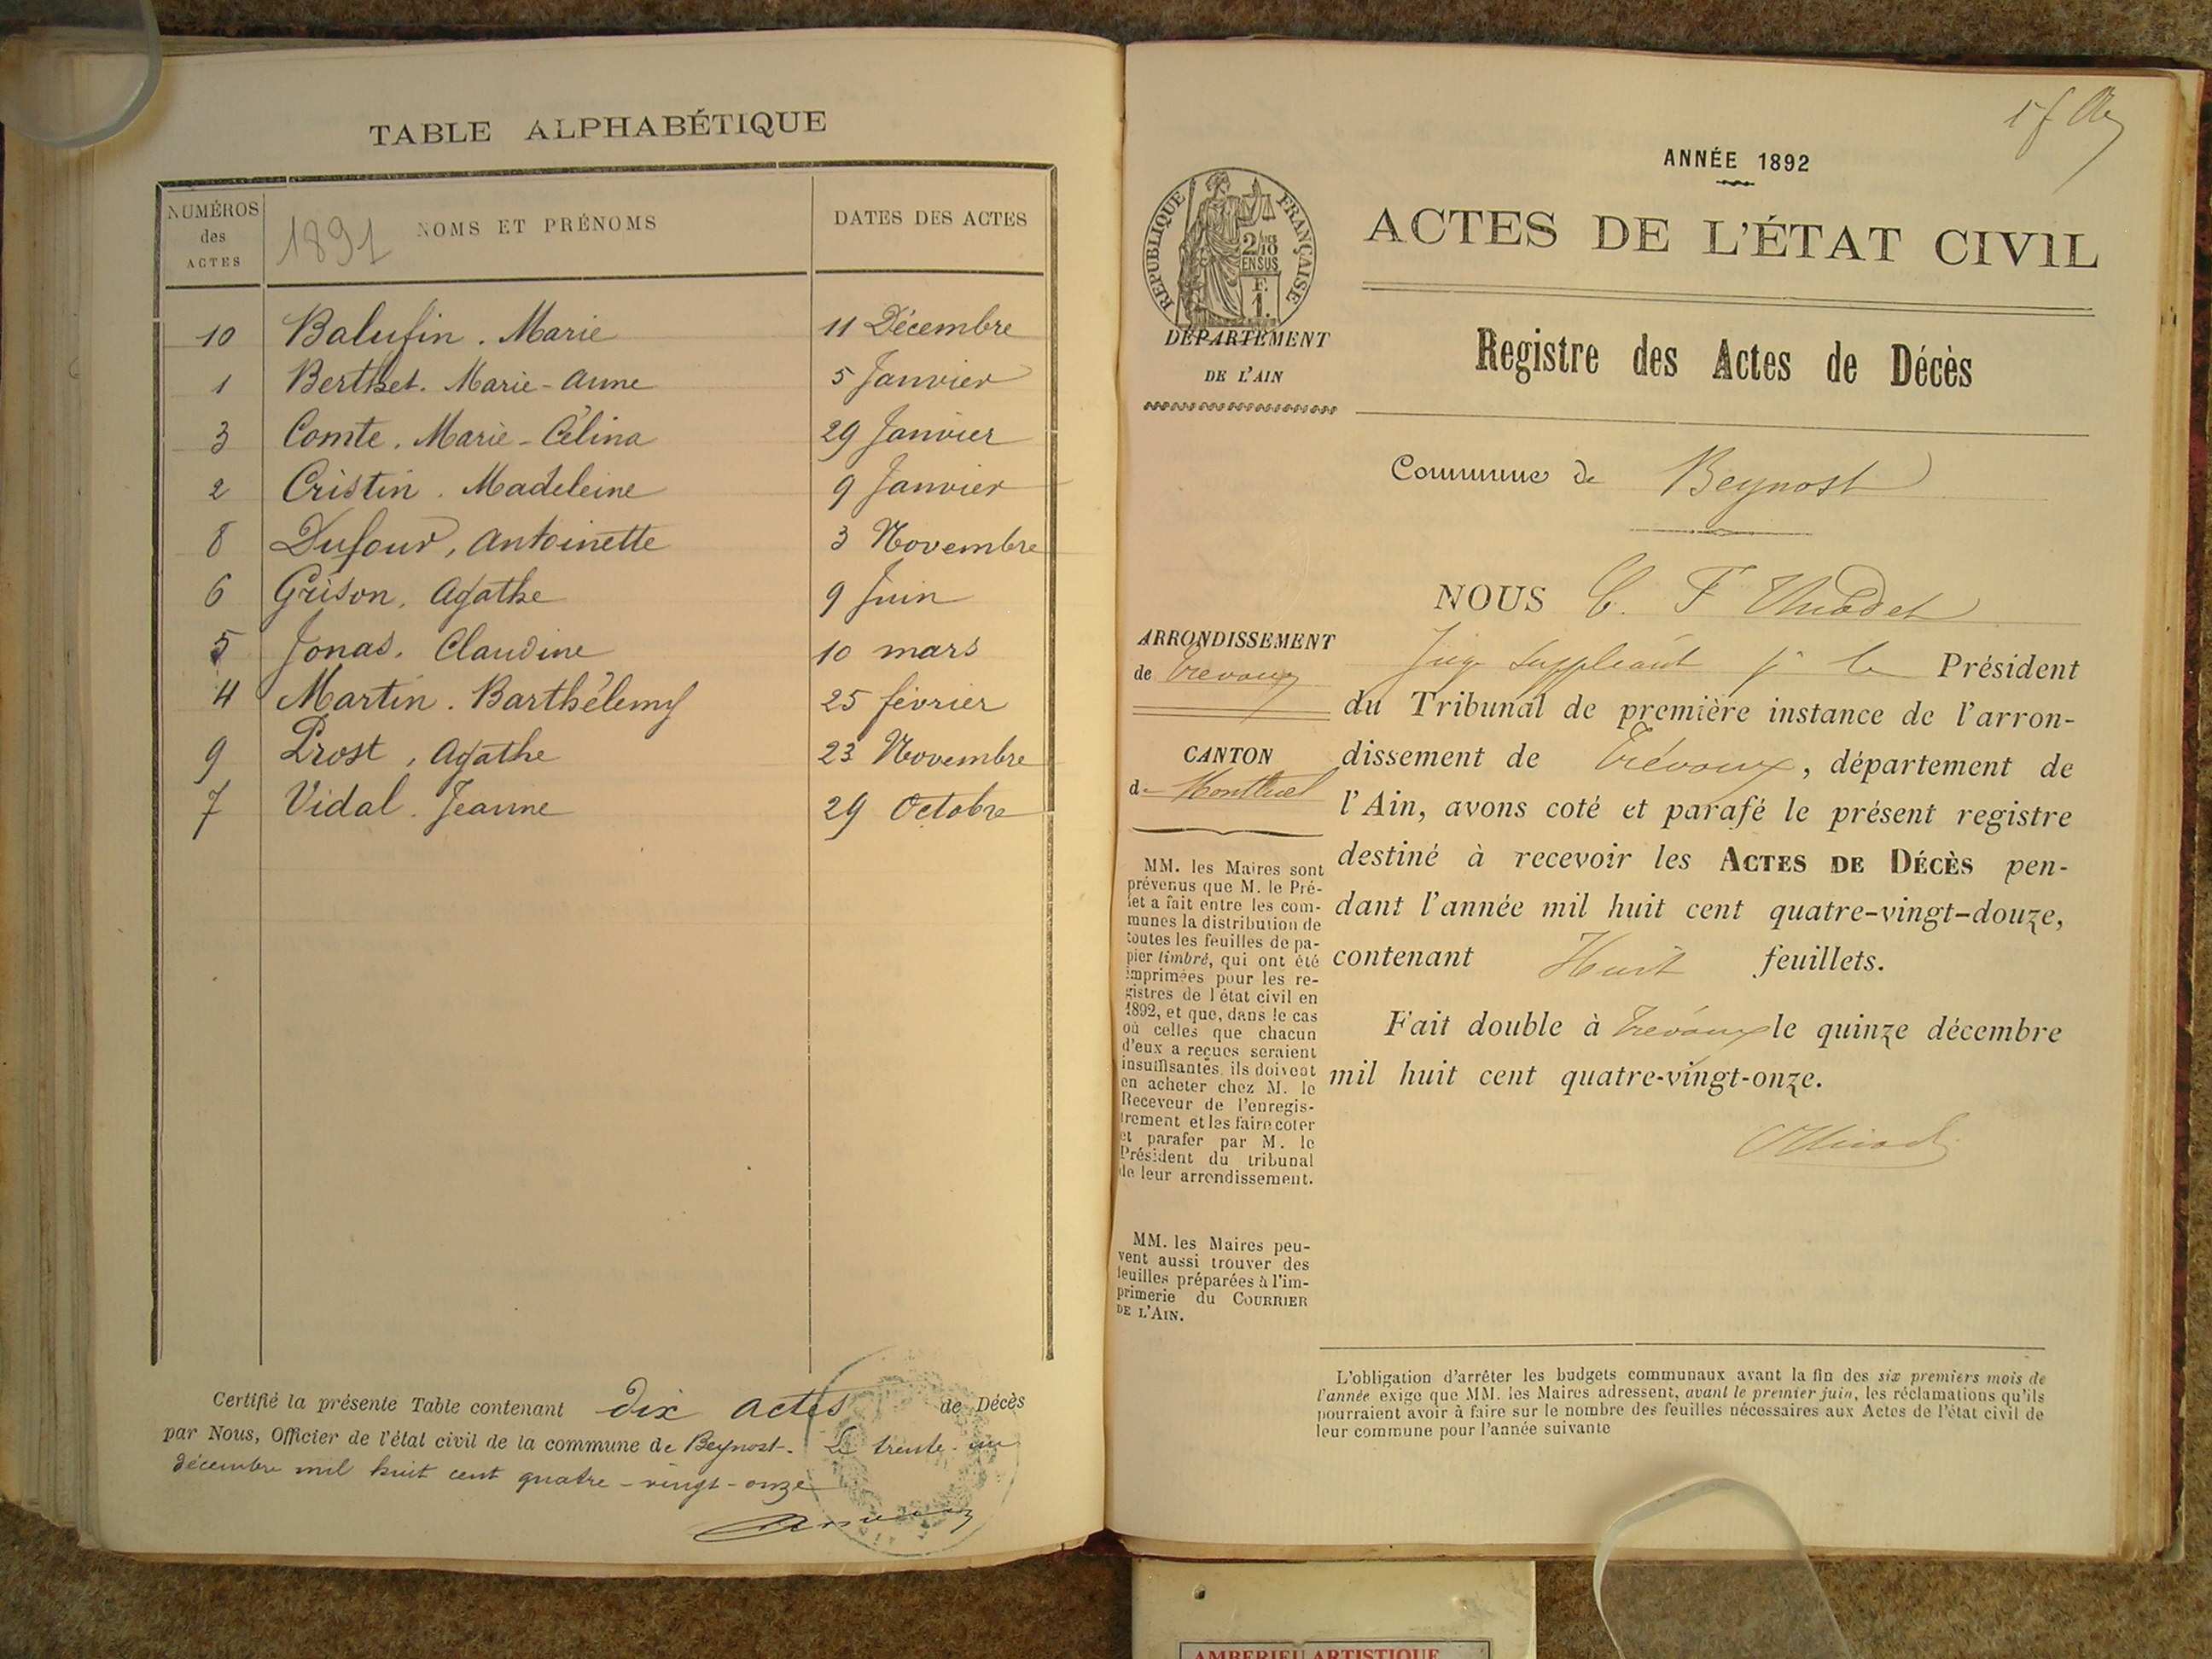 TABLE ALPHABÉTIQUE
NUMÉROS des ACTES
1891 NOMS ET PRÉNOMS
DATES DES ACTES
10 Balufin. Marie 11 Décembre
1 Berthet. Marie-Anne 5 Janvier
3 Comte. Marie-Célina 29 Janvier
2 Cristin. Madeleine 9 Janvier
8 Dufour, Antoinette 3 Novembre
6 Grison. Agathe 9 Juin
5 Jonas. Claudine 10 mars
4 Martin. Barthélemy 25 février
9 Prost, Agathe 23 Novembre
7 Vidal. Jeanne 29 Octobre
Certifié la présente Table contenant dix actes de Décès
par Nous, Officier de l'état civil de la commune de Beynost. Le trente-un
décembre mil huit cent quatre-vingt-onze
ANNÉE 1892
RÉPUBLIQUE FRANÇAISE
2/10
EN SUS
F.
1.
ACTES DE L'ÉTAT CIVIL
DÉPARTEMENT
DE L'AIN
Registre des Actes de Décès
Commune de Beynost
ARRONDISSEMENT
de Trévoux
CANTON
de Montluel
MM. les Maires sont
prévenus que M. le Pré-
fet a fait entre les com-
munes la distribution de
toutes les feuilles de pa-
pier timbré, qui ont été
imprimées pour les re-
gistres de l'état civil en
1892, et que, dans le cas
où celles que chacun
d'eux a reçues seraient
insuffisantes, ils doivent
en acheter chez M. le
Receveur de l'enregis-
trement et les faire coter
et parafer par M. le
Président du tribunal
de leur arrondissement.
MM. les Maires peu-
vent aussi trouver des
feuilles préparées à l'im-
primerie du COURRIER
DE L'AIN.
NOUS C. F.
Juge suppléant pr le Président
du Tribunal de première instance de l'arron-
dissement de Trévoux, département de
l'Ain, avons coté et parafé le présent registre
destiné à recevoir les ACTES DE DÉCÈS pen-
dant l'année mil huit cent quatre-vingt-douze,
contenant Huit feuillets.
Fait double à Trévoux le quinze décembre
mil huit cent quatre-vingt-onze.
L'obligation d'arrêter les budgets communaux avant la fin des six premiers mois de
l'année exige que MM. les Maires adressent, avant le premier juin, les réclamations qu'ils
pourraient avoir à faire sur le nombre des feuilles nécessaires aux Actes de l'état civil de
leur commune pour l'année suivante
AMBERIEU ARTISTIQUE